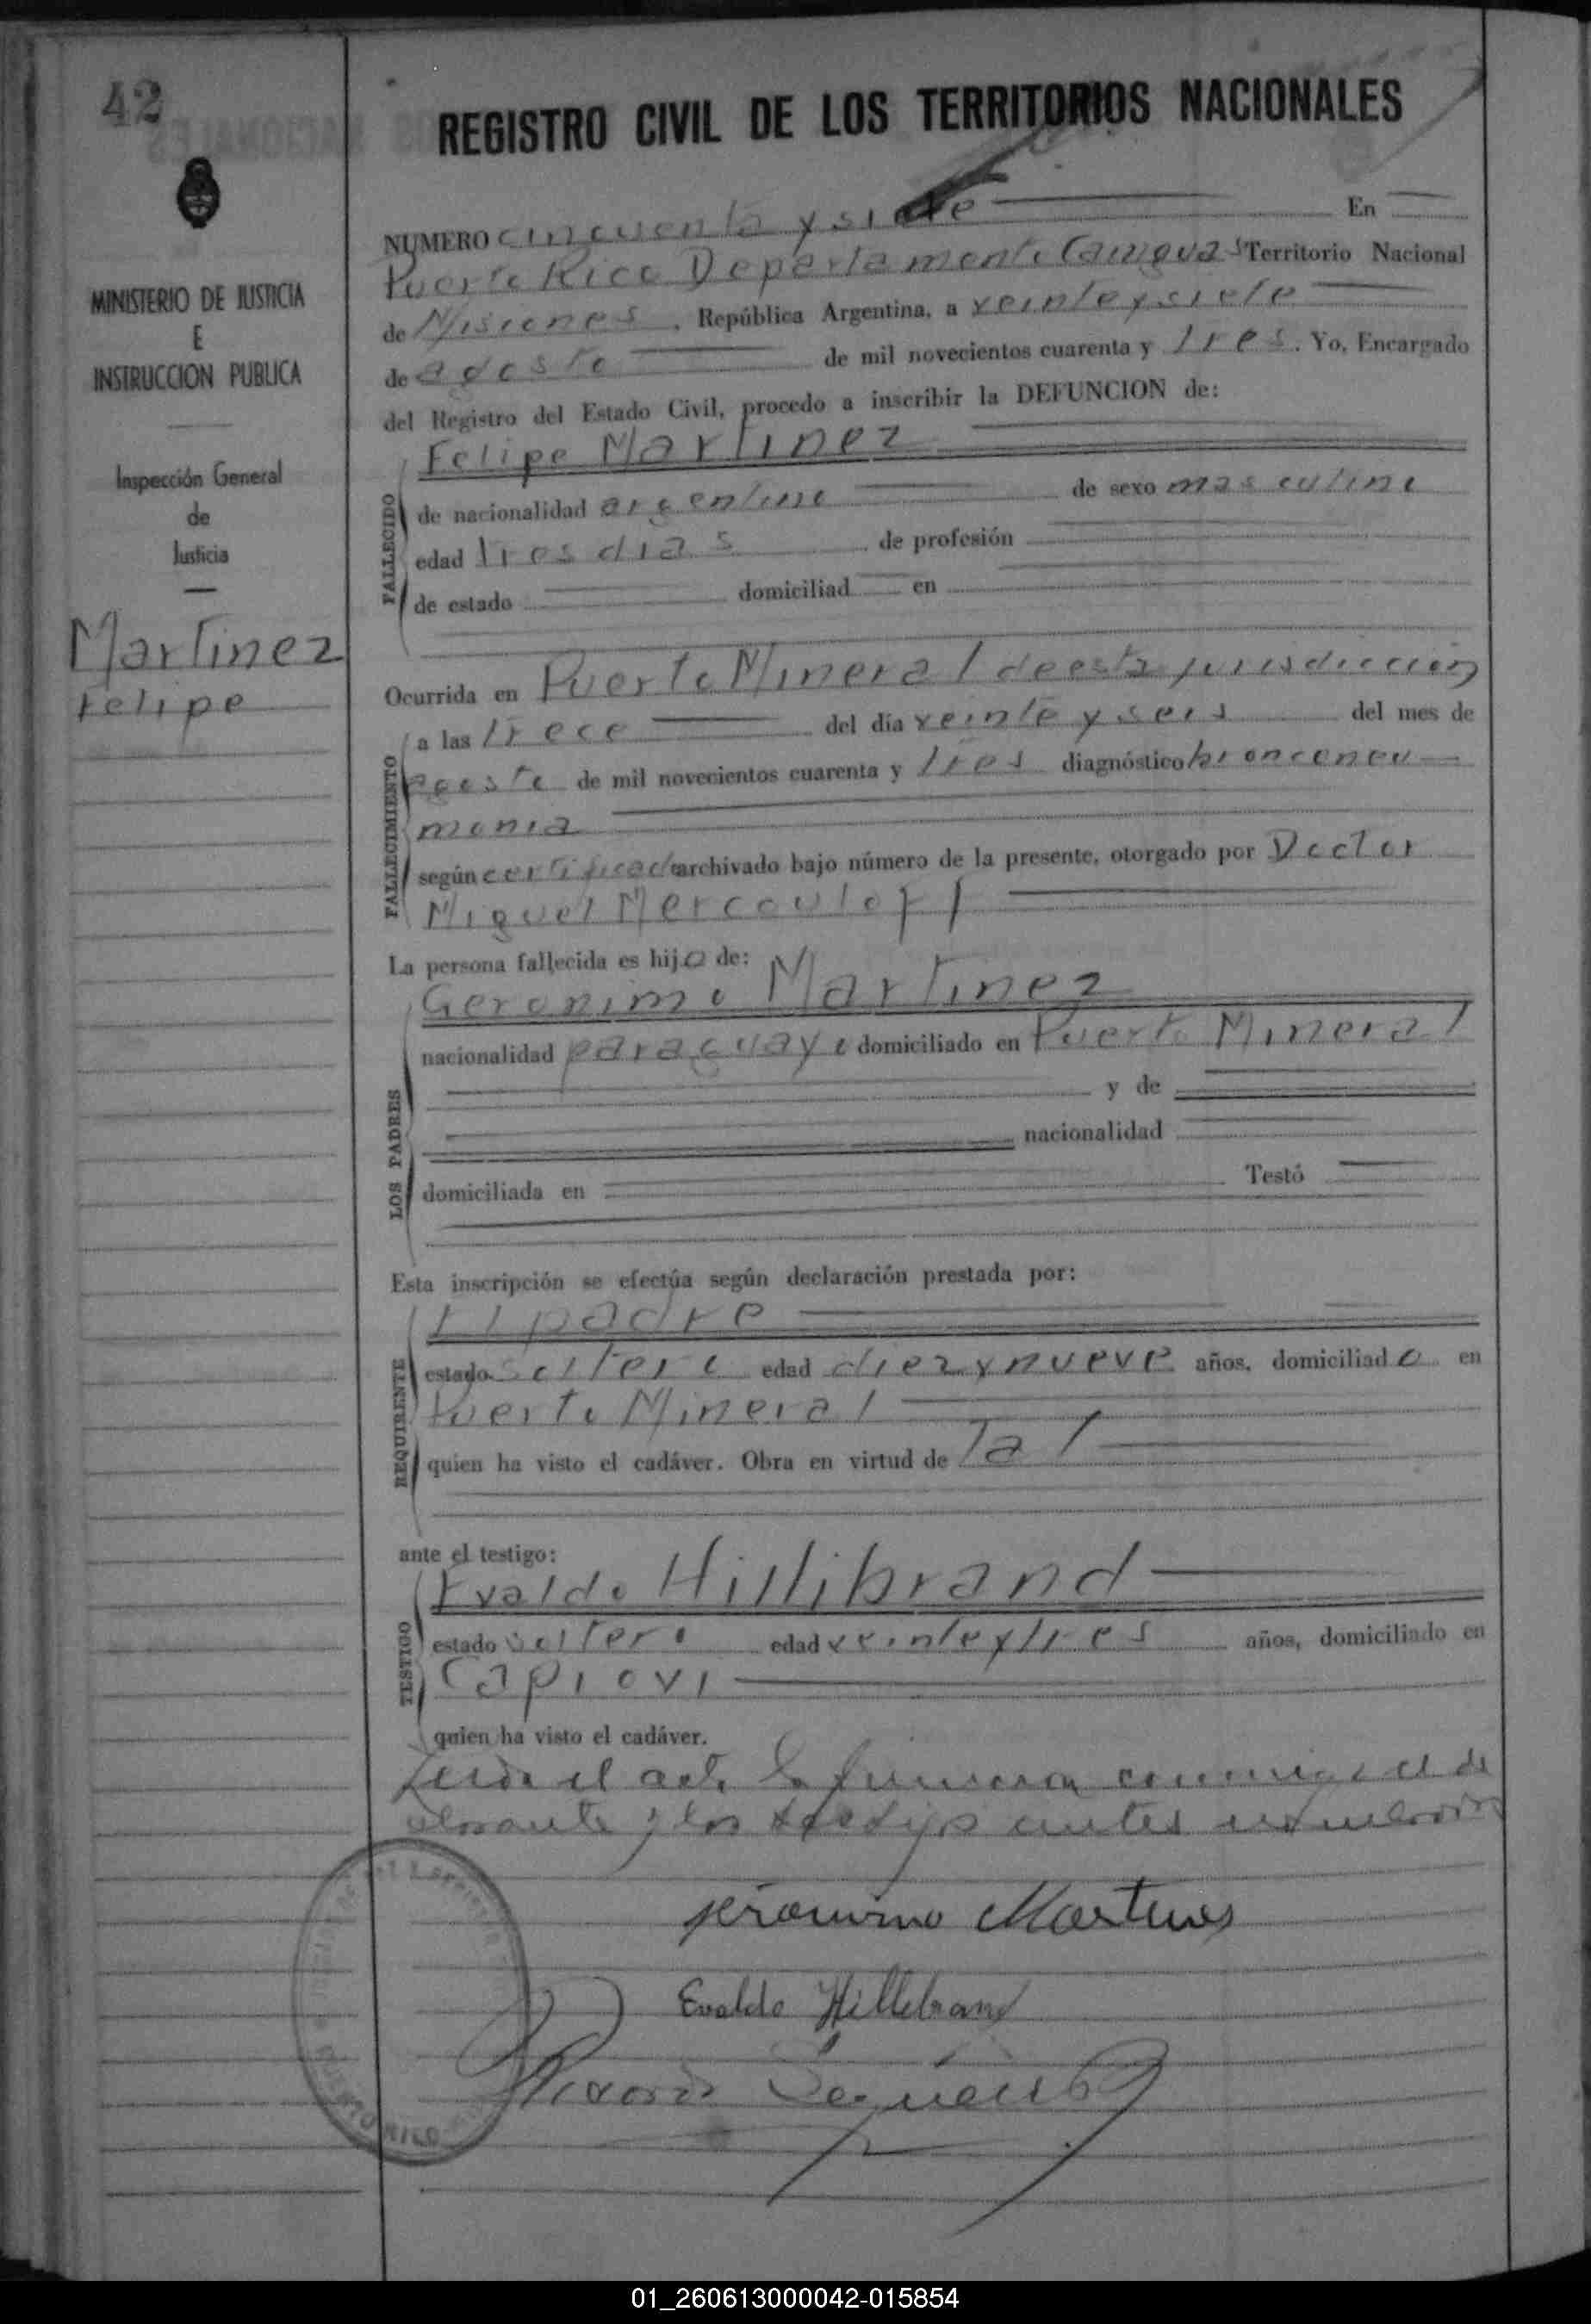 42
REGISTRO CIVIL DE LOS TERRITORIOS NACIONALES
MINISTERIO DE JUSTICIA
E
INSTRUCCION PUBLICA
Inspección General
de
Justicia
Martinez
Felipe
NUMERO cincuenta y siete En
Puerto Rico Departamento Cainguas Territorio Nacional
de Misiones, República Argentina, a veinte y siete
de agosto de mil novecientos cuarenta y tres. Yo, Encargado
del Registro del Estado Civil, procedo a inscribir la DEFUNCION de:
Felipe Martinez
FALLECIDO
de nacionalidad argentino de sexo masculino
edad tres dias de profesión
de estado domiciliad en
Ocurrida en Puerto Mineral de esta jurisdiccion
FALLECIMIENTO
a las trece del día veinte y seis del mes de
agosto de mil novecientos cuarenta y tres diagnóstico bronconeu
monia
según certificado archivado bajo número de la presente, otorgado por Doctor
Miguel Mercouloff
La persona fallecida es hijo de:
Geronimo Martinez
LOS PADRES
nacionalidad paraguayo domiciliado en Puerto Mineral
y de
nacionalidad
domiciliada en Testó
Esta inscripción se efectúa según declaración prestada por:
El padre
REQUIRENTE
estado soltero edad diez y nueve años, domiciliado en
Puerto Mineral
quien ha visto el cadáver. Obra en virtud de Tal
ante el testigo:
Evaldo Hillibrand
TESTIGO
estado soltero edad veinte y tres años, domiciliado en
Capiovi
quien ha visto el cadáver.
Leida el acta la firmaron conmigo el de
clarante y los testigos antes nombrados
Jeronimo Martines
Evaldo Hillebrand
PUERTO RICO
01_260613000042-015854